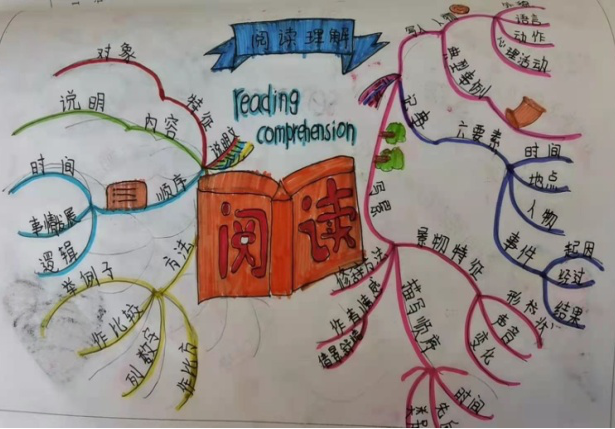 阅读理解
reading
comprehension
阅读
说明文
特征
对象
内容
说明
顺序
时间
事情发展
逻辑
方法
举例子
作比较
列数字
作比方
写人
人物
语言
动作
心理活动
典型事例
记事
六要素
时间
地点
人物
事件
起因
经过
结果
写景
景物特征
形状
声音
变化
描写顺序
时间
修辞方法
作者情感
情景交融